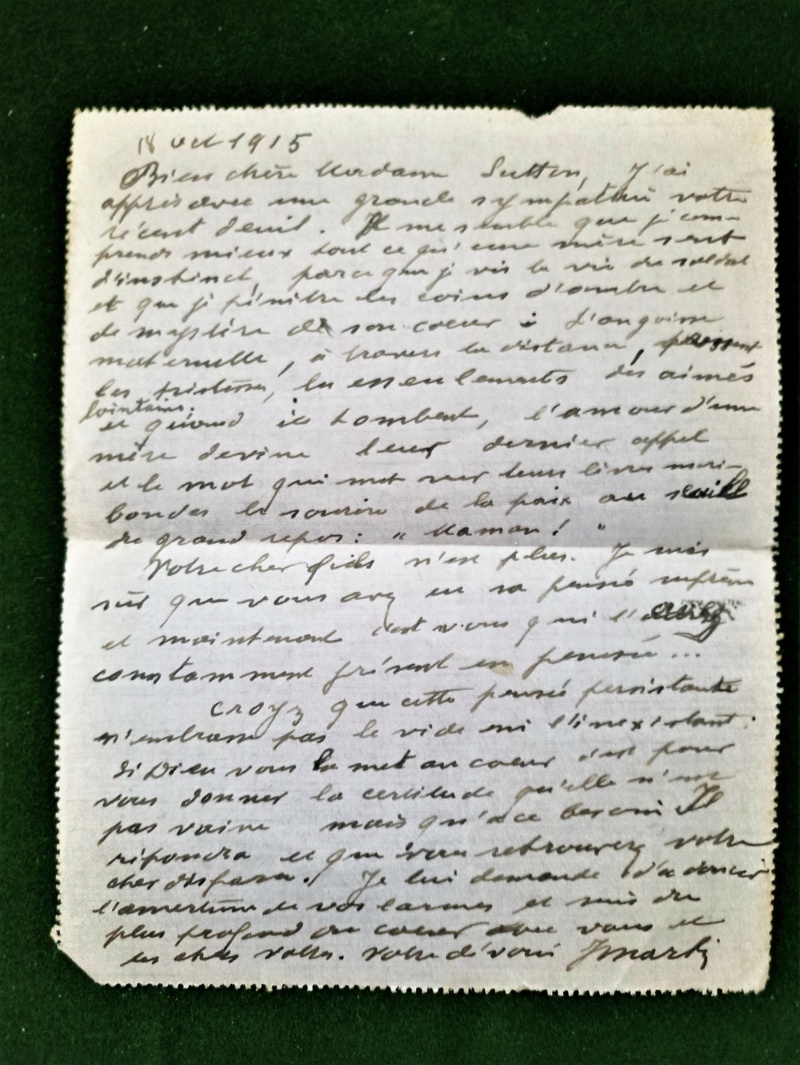 18 oct 1915
Bien chère Madame Sutton, J'ai
appris avec une grande sympathie votre
récent deuil. Il me semble que je com-
prends mieux tout ce qu'une mère sent
d'instinct, parce que je vis la vie du soldat
et que je pénètre les coins d'ombre et
de mystère de son coeur : L'angoisse
maternelle, à travers la distance,
les tristesses, les esseulements des aimés
lointains
et quand ils tombent, l'amour d'une
mère devine leur dernier appel
et le mot qui met sur leurs lèvres mori-
bondes le sourire de la paix au seuil
du grand repos : " Maman ! "
Votre cher fils n'est plus. Je suis
sûr que vous avez eu sa pensée suprême
et maintenant c'est vous qui l'avez
constamment présent en pensée ...
Croyez que cette pensée persistante
n'embrasse pas le vide ni l'inexistant.
Si Dieu vous la met au coeur c'est pour
vous donner la certitude qu'elle n'est
pas vaine mais qu'à ce besoin Il
répondra et que vous retrouverez votre
cher disparu. Je lui demande d'adoucir
l'amertume de vos larmes et suis du
plus profond du coeur avec vous et
les chers vôtres. Votre dévoué JMartin